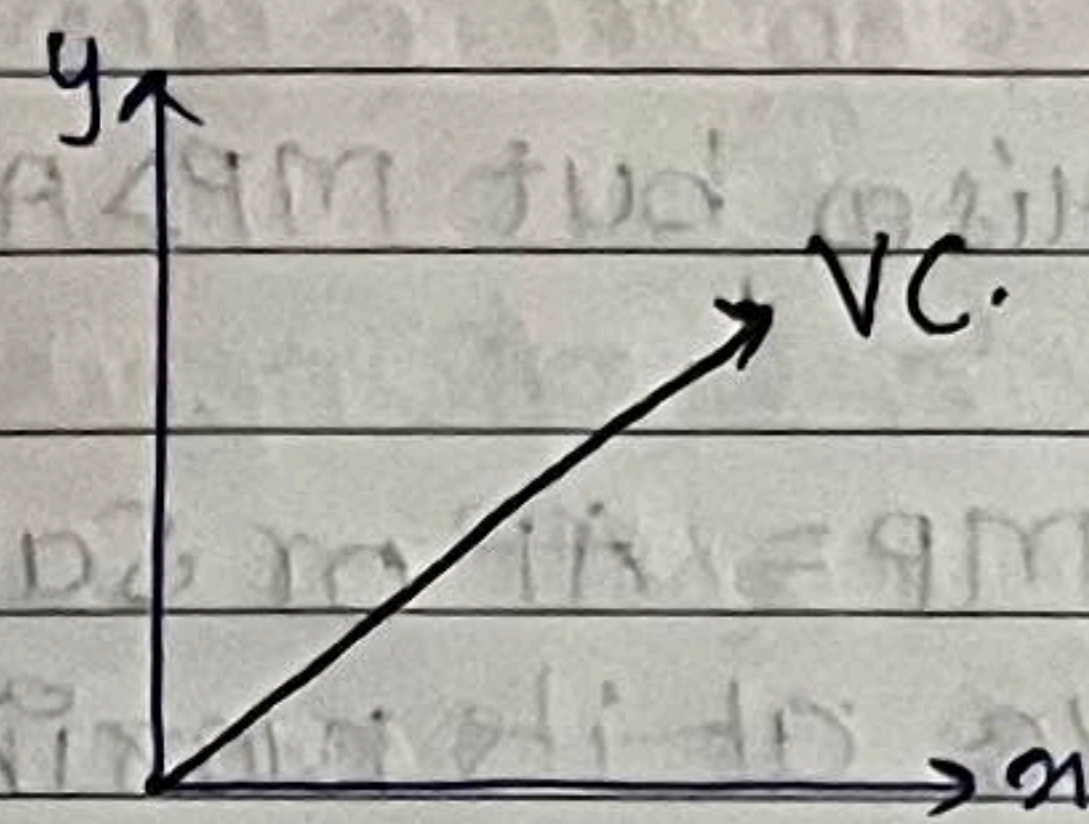 y
VC.
x